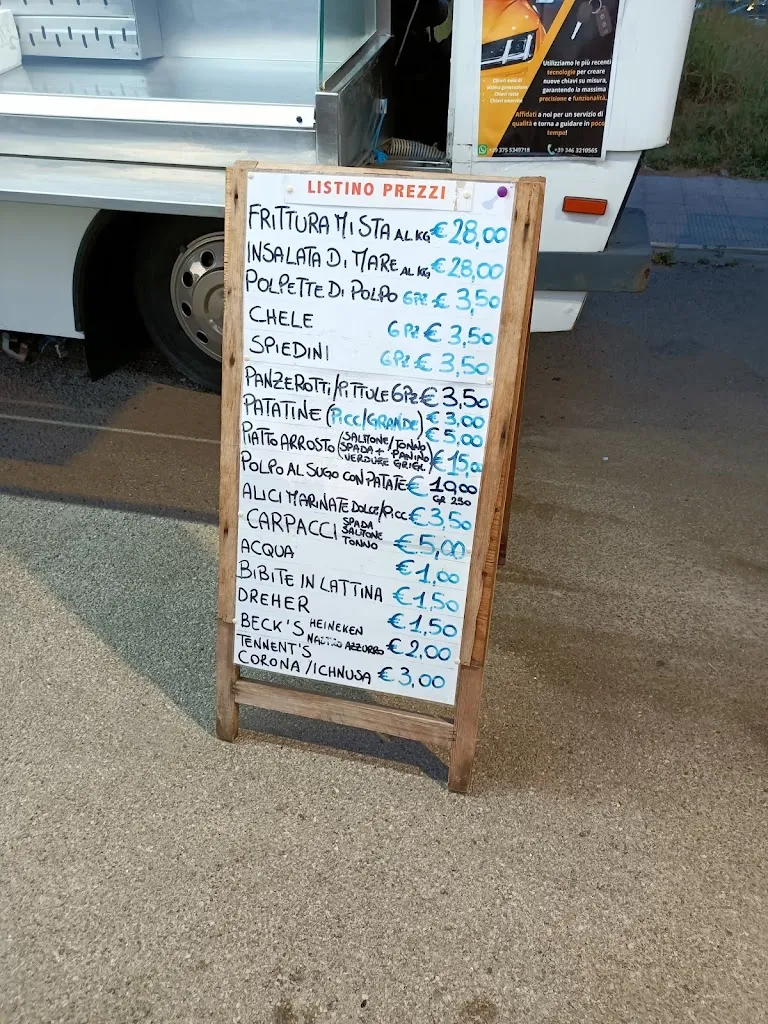 Utilizziamo le più recenti
tecnologie per creare
nuove chiavi su misura,
garantendo la massima
precisione e funzionalità.
Affidati a noi per un servizio di
qualità e torna a guidare in poco
tempo!
+39 375 5349718
+39 346 3210565
LISTINO PREZZI
FRITTURA MISTA AL KG € 28,00
INSALATA DI MARE AL KG € 28,00
POLPETTE DI POLPO 6PZ € 3,50
CHELE 6PZ € 3,50
SPIEDINI 6PZ € 3,50
PANZEROTTI/PITTULE 6PZ € 3,50
PATATINE (PICC/GRANDE) € 3,00
€ 5,00
PIATTO ARROSTO (SALMONE/TONNO
SPADA + PANINO
VERDURE GRIGL) € 15,00
POLPO AL SUGO CON PATATE € 10,00
GR 250
ALICI MARINATE DOLCE/PICC € 3,50
CARPACCI SPADA
SALMONE
TONNO € 5,00
ACQUA € 1,00
BIBITE IN LATTINA € 1,50
DREHER € 1,50
BECK'S HEINEKEN
TENNENT'S NASTRO AZZURRO € 2,00
CORONA/ICHNUSA € 3,00